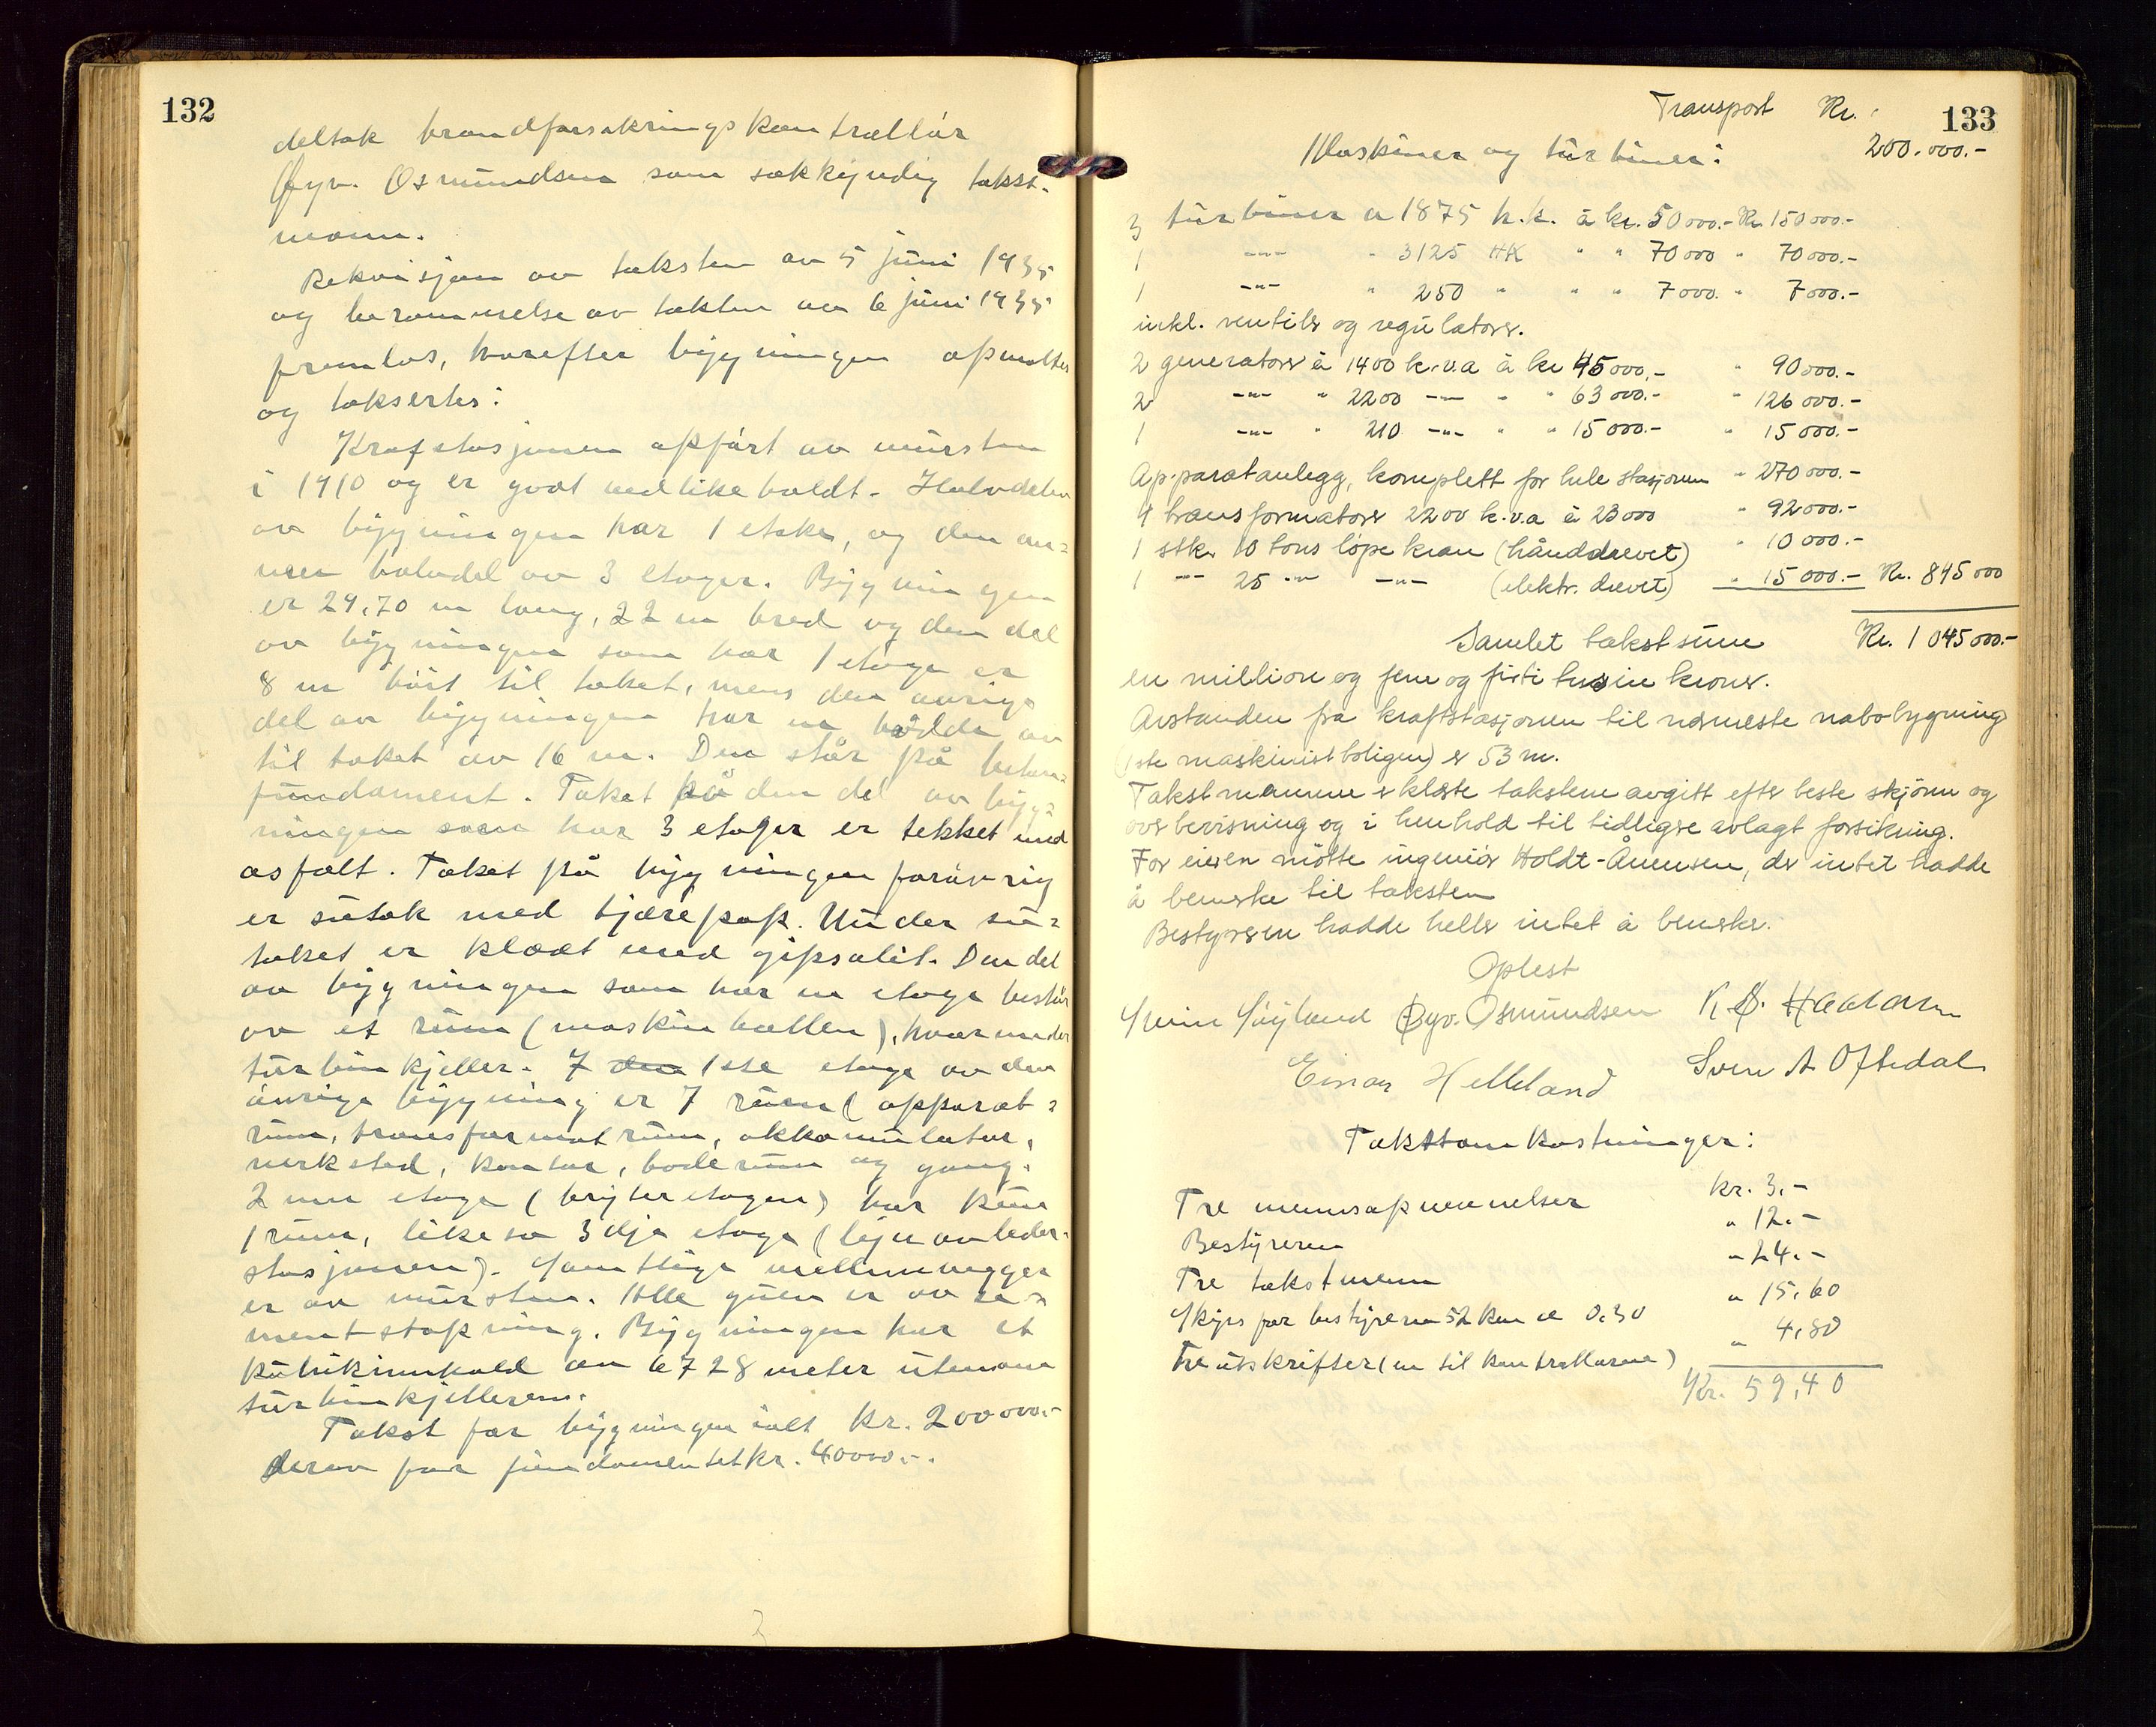 132
deltok brandforsikringskontrollør
Øyv. Osmundsen som sakkyndig takst-
mann.
Rekvisisjon av taksten av 5 juni 1935
og berammelse av taksten av 6 juni 1935
fremlas, hvorefter bygningen opmaltes
og taksertes:
Krafstasjonen opført av mursten
i 1910 og er godt vedlikeholdt. Halvdelen
av bygningen har 1 etake, og den an-
nen halvdel av 3 etager. Bygningen
er 29,70 m lang, 22 m bred og den del
av bygningen som har 1 etage er
8 m høit til taket, mens den øvrige
del av bygningen har en høide av
til taket av 16 m. Den står på betong-
fundament. Taket på den del av byg-
ningen som har 3 etager er tekket med
asfalt. Taket på bygningen forøvrig
er sutak med tjærepap. Under su-
taket er klædt med gipsolit. Den del
av bygningen som har en etage består
av et rum (maskinhallen), hvorunder
turbinkjeller. I den 1ste etage av den
øvrige bygning er 7 rum (apparat-
rum, transformatrum, akkomulator,
verksted, kontor, boderum og gang.
2nen etage (bryteretagen) har kun
1 rum, likeså 3dje etage (lynavleder-
stasjonen). Samtlige mellemvegger
er av mursten. Alle gulv er av se-
mentstøpning. Bygningen har et
kubikinnhold av 6728 meter utenom
turbinkjelleren.
Takst for bygningen ialt kr. 200000.-
derav for fundamentet kr. 40000.-.
133
Transport Kr.
200.000.-
Maskiner og turbiner:
3 turbiner a 1875 h.k. à kr. 50000.- Kr. 150000.-
1 -"- " 3125 HK " " 70000 " 70000.-
1 -"- " 250 " " " 7000. " 7000.-
inkl. ventiler og regulatorer.
2 generatorer à 1400 k.v.a à kr 45000,- " 90000.-
2 -"- " 2200 -"- " " 63000.- " 126000.-
1 -"- " 210 -"- " " 15000.- " 15000.-
Apparatanlegg, komplett for hele stasjonen " 270000.-
4 transformatorer 2200 k.v.a à 23000 " 92000.-
1 stk. 10 tons løpekran (hånddrevet) " 10000.-
1 -"- 25 -"- -"- (elektr. drevet) " 15000.- Kr. 845000
Samlet takstsum Kr. 1045000.-
en million og fem og firti tusin kroner.
Avstanden fra kraftstasjonen til nærmeste nabobygning
(1ste maskinistboligen) er 53 m.
Takstmennene erklærte takstene avgitt efter beste skjønn og
overbevisning og i henhold til tidligere avlagt forsikring.
For eieren møtte ingeniør Holdt-Ånensen, der intet hadde
å bemerke til taksten
Bestyreren hadde heller intet å bemerke.
Oplest
Svein Søyland Øyv. Osmundsen K. Ø. Haaland
Einar Helleland Sven A Oftedal
Takstomkostninger:
Tre mennsopnevnelser kr. 3.-
Bestyreren " 12.-
Tre takstmenn " 24.-
Skyss for bestyreren 52 km a 0.30 " 15,60
Tre utskrifter (en til kontrolløren) " 4,80
Kr. 59,40